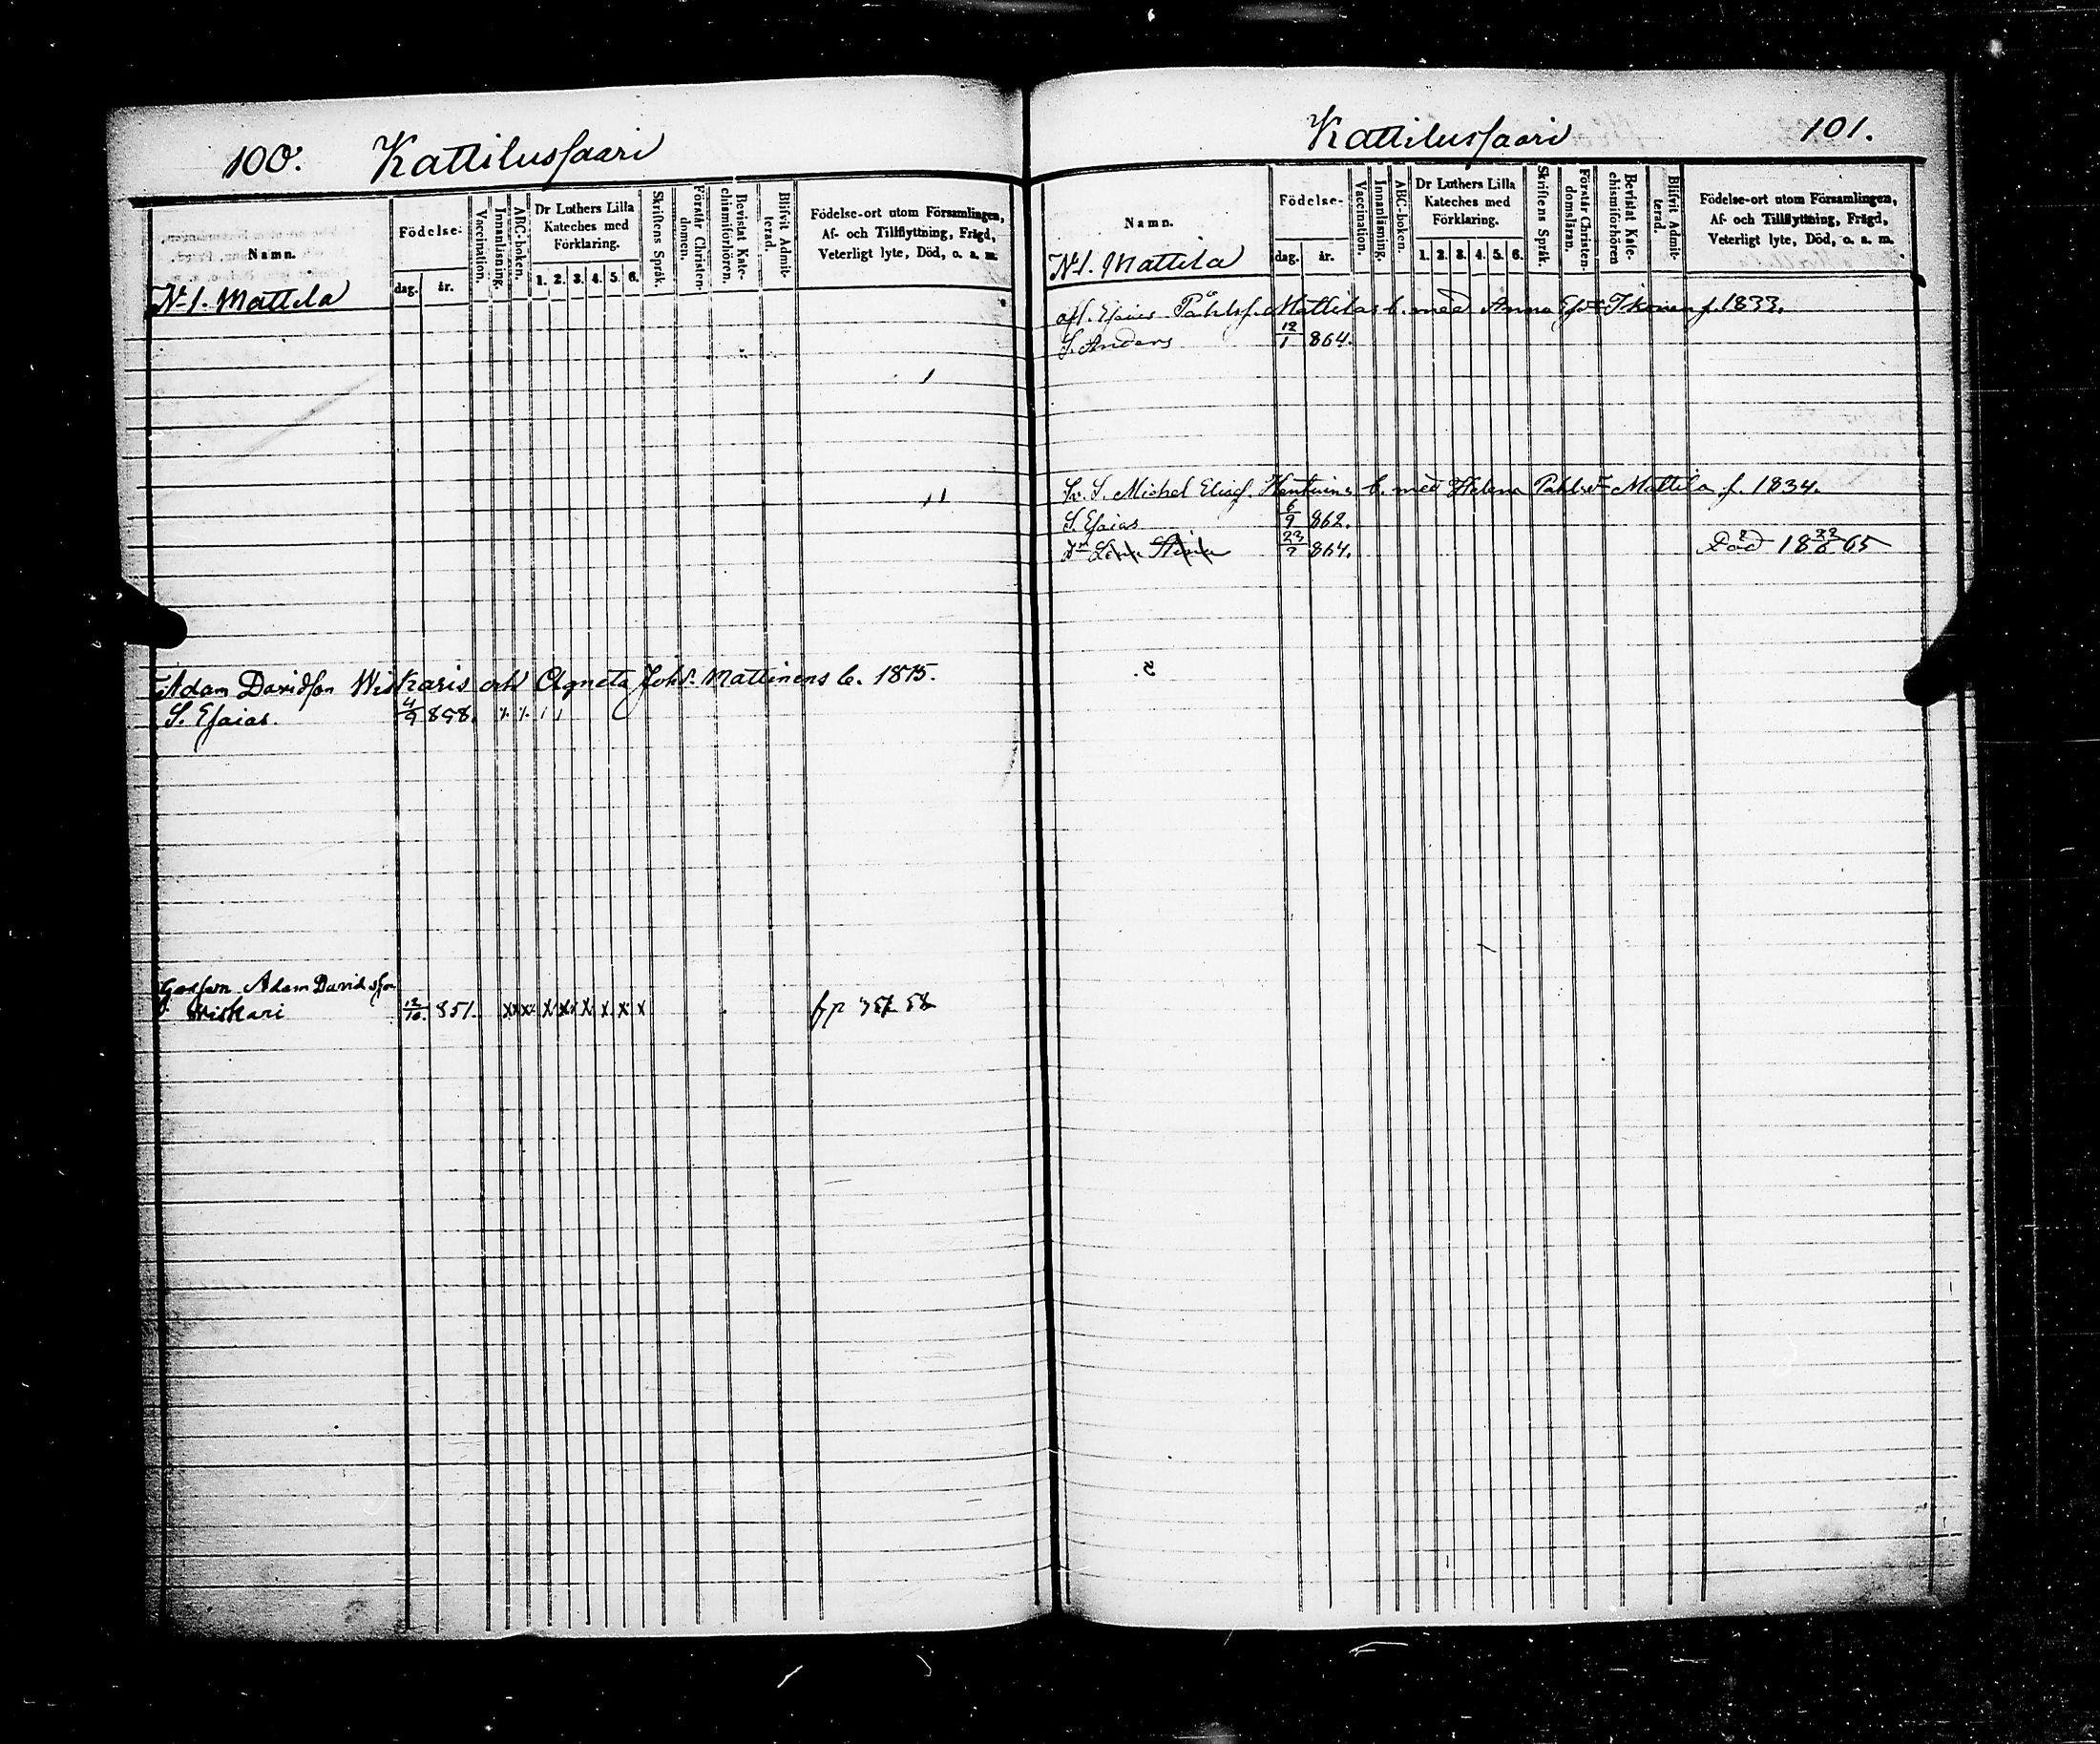 100. Kattilussaari
Namn.
Födelse-
dag. år.
Vaccination.
Innanläsning.
ABC-boken.
Dr Luthers Lilla Kateches med Förklaring.
1. 2. 3. 4. 5. 6.
Skriftens Språk.
Förstår Christendomen.
Bevistat Katechismiförhören.
Blifvit Admitterad.
Födelse-ort utom Församlingen,
Af- och Tillflyttning, Frägd,
Veterligt lyte, Död, o. s. m.
No 1. Mattila
Adam Davidson Wiskaris och Agneta Johsd. Mattinens b. 1875.
S. Esaias. 4/9 858.
Gossen Adam Davidsson
Wiskari 12/10. 851. x x x x x x x x x
Kattilussaari 101.
Namn.
Födelse-
dag. år.
Vaccination.
Innanläsning.
ABC-boken.
Dr Luthers Lilla Kateches med Förklaring.
1. 2. 3. 4. 5. 6.
Skriftens Språk.
Förstår Christendomsläran.
Bevistat Katechismiförhören
Blifvit Admitterad.
Födelse-ort utom Församlingen,
Af- och Tillflyttning, Frägd,
Veterligt lyte, Död, o. s. m.
No 1. Mattila
Esaias Påhlss. Mattilas b. med Anna f. 1833.
S. Anders 12/1 864.
S. Michel Eliass. b. med Helena Pahlsd. Mattila f. 1834.
S. Esaias 6/9 862.
Dr Lena Stina 864. Död 18 65